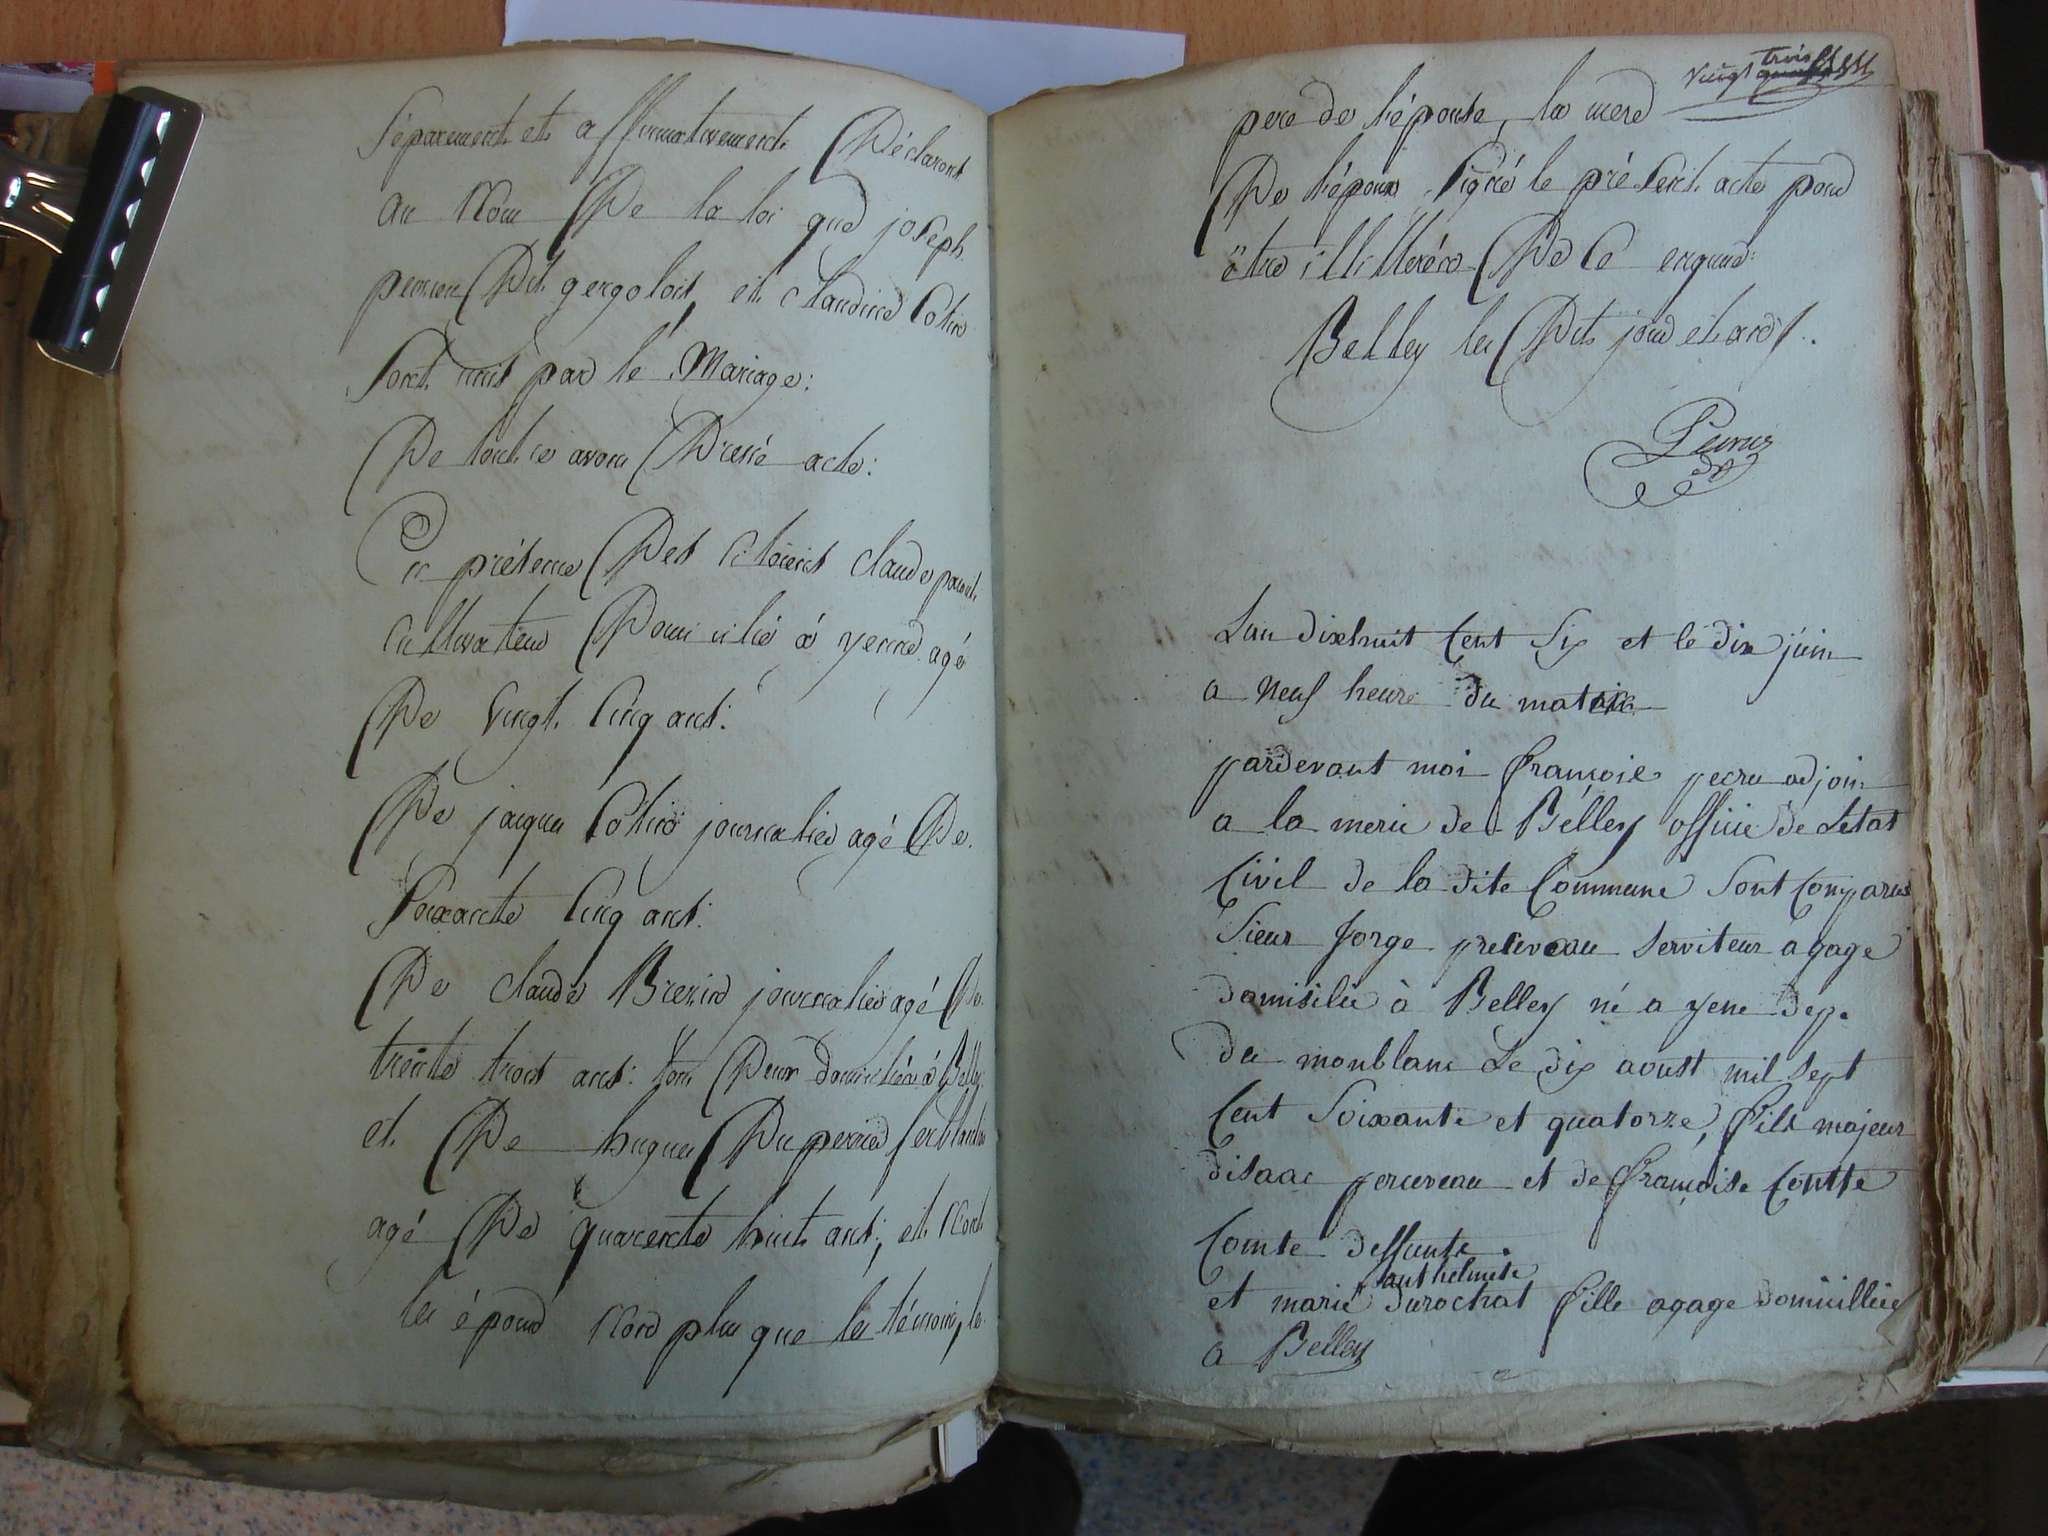 Séparement et affirmativement Déclarons
au Nom De la loi que joseph
perrier Dit gergolois, et claudine Cotin
Sont unis par le Mariage:
De tout ce avons Dressé acte:
En présence Des citoiens claude
cultivateur Domicilié à yenne agé
De vingt Cinq ans:
De jacques Cotin journalier agé De
Soixante Cinq ans:
De claude Brezin journalier agé De
trente trois ans: tous Deux domiciliés à Belley
et De hugues Duperier ferblantier
agé De quarente huit ans; et n'ont
les époux non plus que les témoins, le
vingt trois
pere de l'épouse, la mere
De l'époux Signé le présent acte pour
être illitéré De ce enquis:
Belley les Dits jour et an
Lan dixhuit Cent Six et le dix juin
a neuf heure du matin
pardevant moi françois pecru adjoin
a la merie de Belley officié de Letat
Civil de la dite Commune Sont Comparus
Sieur Jorge preuveau serviteur a gage
domisilié à Belley né a yene dep.
du monblanc Le dix avoust mil sept
Cent Soixante et quatorze, fils majeur
disaac peruveau et de françoise Contte
Comte deffunts.
anthelmete
et marie durochat fille agage domicilliée
a Belley